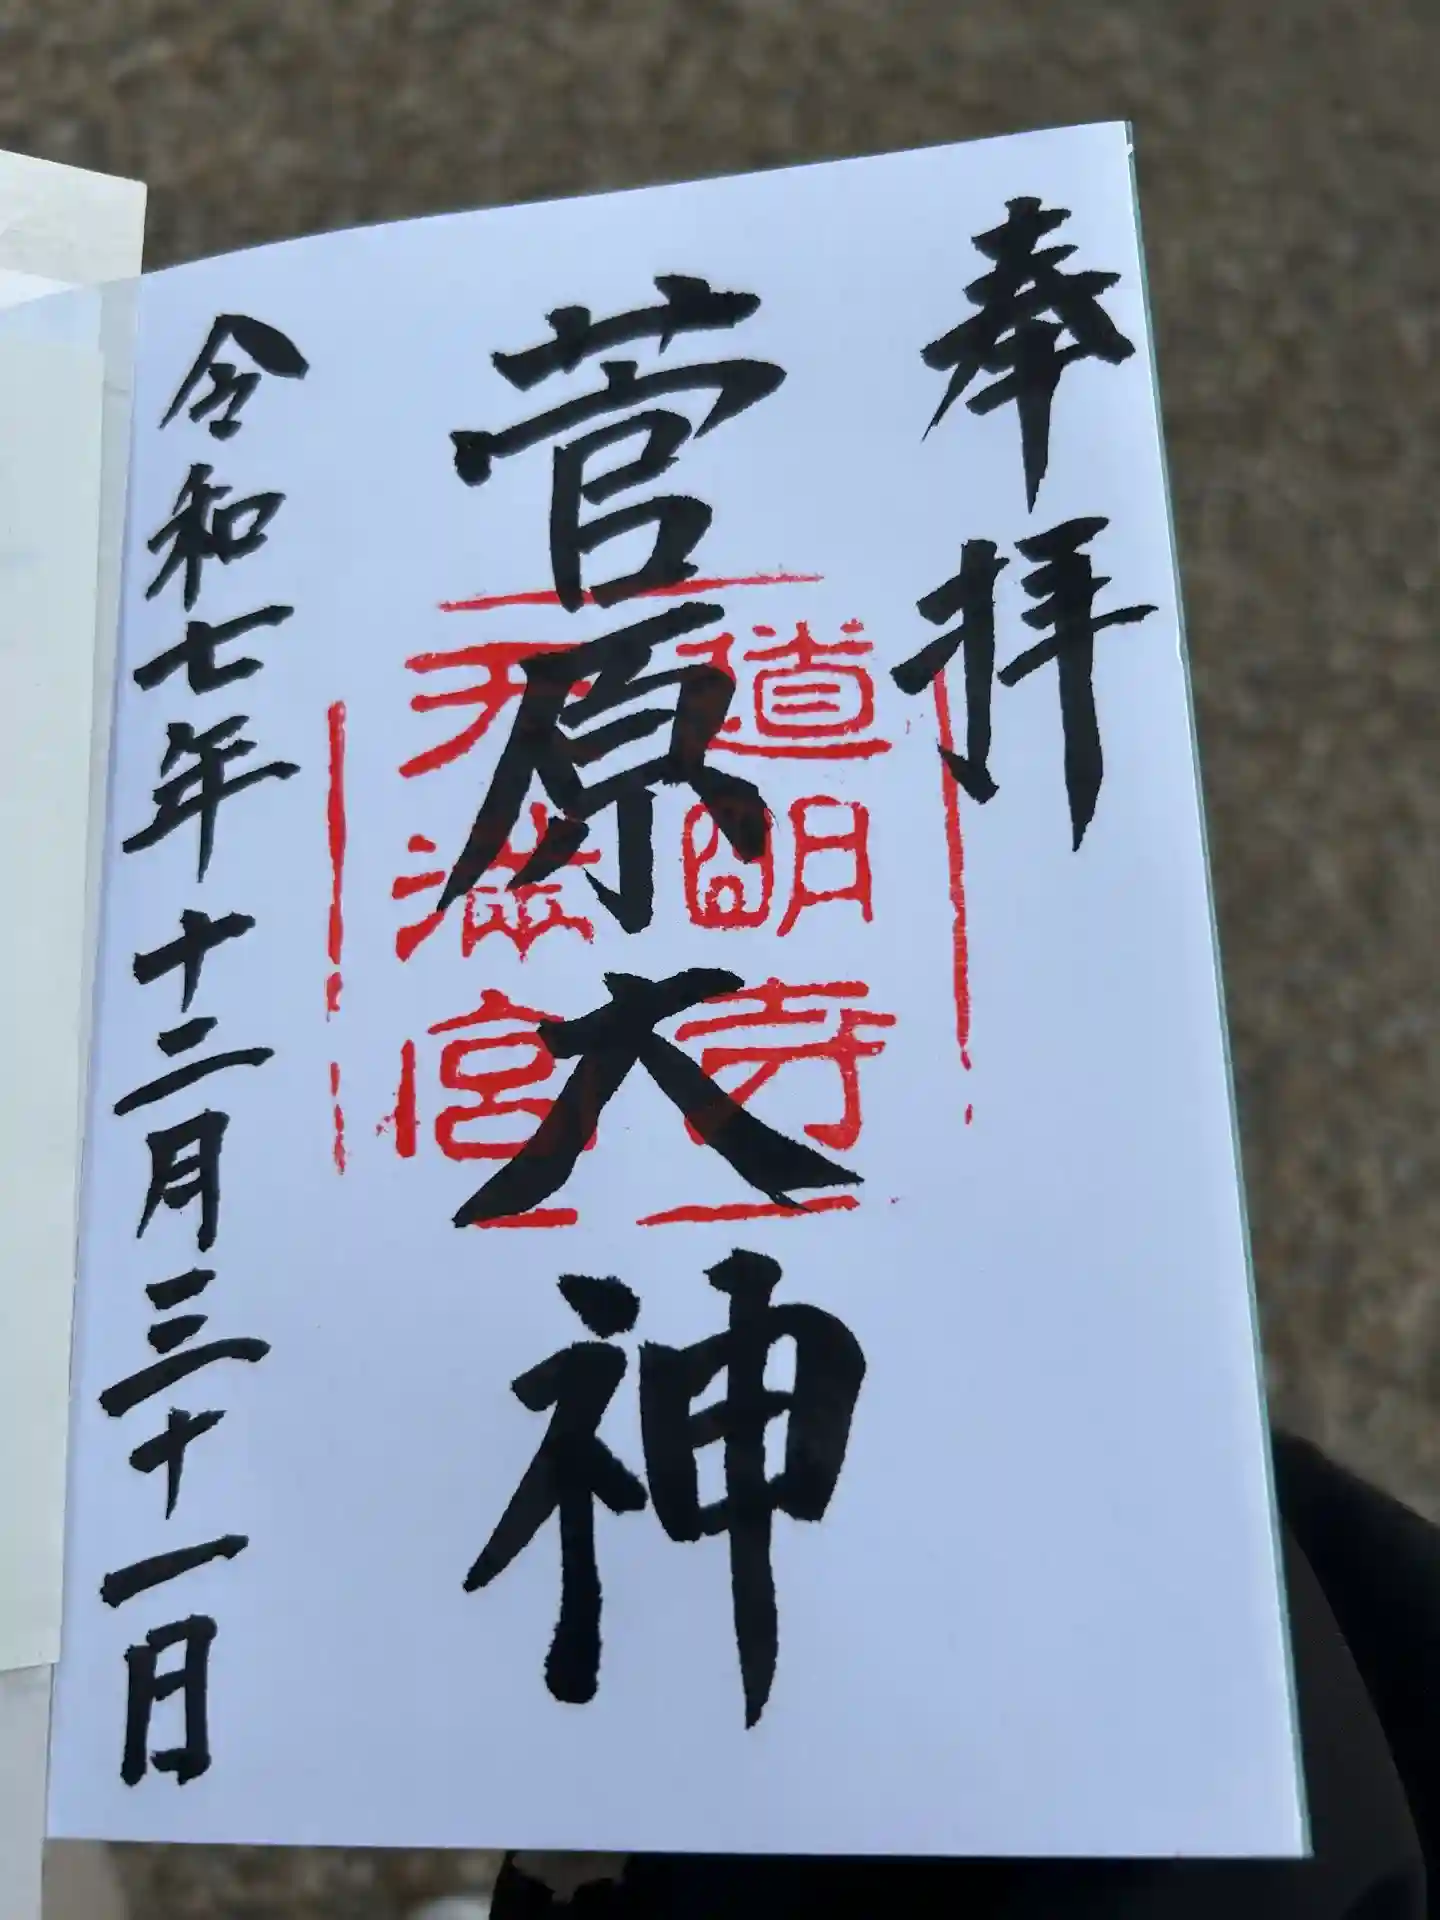 奉拝
菅原大神
道明寺
天満宮
令和七年十二月三十一日